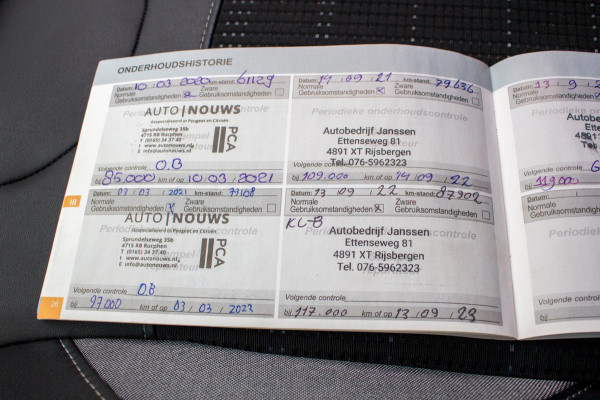 ONDERHOUDSHISTORIE
Datum: 10.03 2020 km-stand: 61129
Normale Gebruiksomstandigheden x Zware Gebruiksomstandigheden
AUTO NOUWS
Gespecialiseerd in Peugeot en Citroën
Sprundelseweg 35b
4715 RB Rucphen
T (0165) 34 27 40
I www.autonouws.nl
E info@autonouws.nl
PCA
Volgende controle O.B
bij 85.000 km of op 10.03.2022
Datum: 14 09 21 km-stand: 79636
Normale Gebruiksomstandigheden x Zware Gebruiksomstandigheden
Periodieke onderhoudscontrole
Autobedrijf Janssen
Ettenseweg 81
4891 XT Rijsbergen
Tel. 076-5962323
Volgende controle
bij 109.000 km of op 14 09 22
Datum: 03 / 03 / 2021 km-stand: 73108
Normale Gebruiksomstandigheden x Zware Gebruiksomstandigheden
AUTO NOUWS
Gespecialiseerd in Peugeot en Citroën
Sprundelseweg 35b
4715 RB Rucphen
T (0165) 34 27 40
I www.autonouws.nl
E info@autonouws.nl
PCA
Volgende controle O.B
bij 97.000 km of op 03 / 03 / 2022
Datum: 13 09 22 km-stand: 87902
Normale Gebruiksomstandigheden x Zware Gebruiksomstandigheden
KL-B
Autobedrijf Janssen
Ettenseweg 81
4891 XT Rijsbergen
Tel. 076-5962323
Volgende controle
bij 117.000 km of op 13 / 09 / 23
26
Datum: 13 9
Normale
Gebruiksomstandigheden
Periodieke
Volgende controle
bij 119.000
Datum:
Normale
Gebruiksomstandigheden
Volgende controle
bij